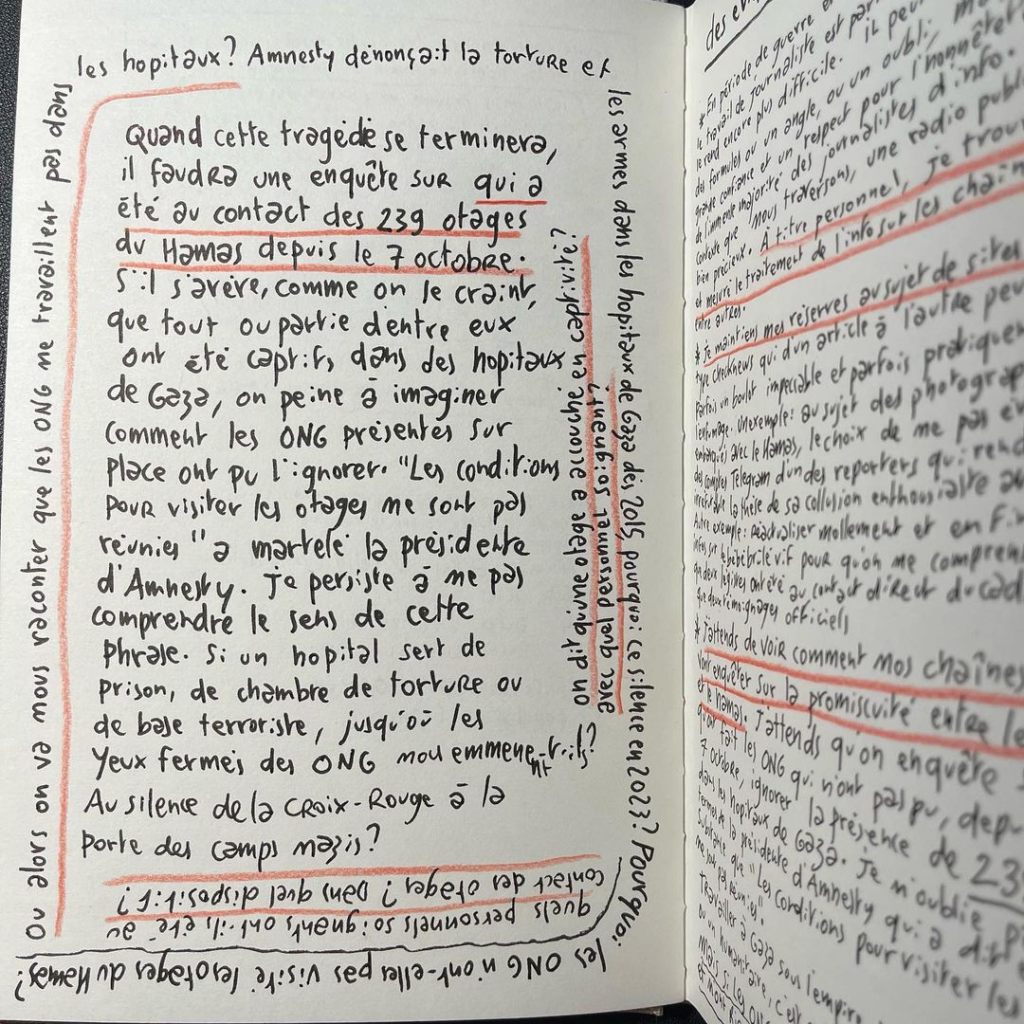 Quand cette tragédie se terminera,
il faudra une enquête sur qui a
été au contact des 239 otages
du Hamas depuis le 7 octobre.
S'il s'avère, comme on le craint,
que tout ou partie d'entre eux
ont été captifs dans des hopitaux
de Gaza, on peine à imaginer
comment les ONG présentes sur
place ont pu l'ignorer. "Les conditions
pour visiter les otages ne sont pas
réunies" a martelé la présidente
d'Amnesty. Je persiste à ne pas
comprendre le sens de cette
phrase. Si un hopital sert de
prison, de chambre de torture ou
de base terroriste, jusqu'où les
yeux fermés des ONG nou emmene-nt-t-ils?
Au silence de la Croix-Rouge à la
porte des camps nazis?
ou alors on va nous raconter que les ONG ne travaillent pas dans
les hopitaux? Amnesty dénonçait la torture et
les armes dans les hopitaux de Gaza dès 2015, pourquoi ce silence en 2023? Pourquoi
les ONG n'ont-elles pas visité les otages du Hamas?
quels personnels soignants ont-ils été au
contact des otages? Dans quel dispositif?
on dit qu'une otage a accouché en captivité?
avec quel personnel soignant?
* En période de guerre
le travail de journaliste est
le rend encore plus difficile. il peu
des formules ou un angle, ou un oubli,
grande confiance et un respect pour l'honnêtet
de l'immense majorité des journalistes d'info.
contexte que nous traversons, une radio publi
bien précieux. À titre personnel, je trou
et mesuré le traitement de l'info sur les chaîn
entre autres.
* Je maintiens mes réserves au sujet de sites
type checknews qui d'un article à l'autre peu
parfois un boulot impeccable et parfois pratiquer
l'enfumage. Un exemple: au sujet des photograp
avec le Hamas, le choix de ne pas
des comptes Telegram d'un des reporters qui rend
la thèse de sa collusion enthousiaste
Autre exemple: réactualiser mollement et en fin
pour qu'on ne compren
ont été au contact direct du
que deux témoignages officiels
* J'attends de voir comment nos chaînes
vont enquêter sur la promiscuité entre le
et le Hamas. J'attends qu'on enquête
qu'ont fait les ONG qui n'ont pas pu, dep
7 octobre, ignorer la présence de 23
dans les hopitaux de Gaza. Je n'oublie p
termes de la présidente d'Amnesty qui a dit
que "Les conditions pour visiter les
ne sont pas réunies".
travailler à Gaza sous l'empire
ou un humanitaire, c'est
Mais si les